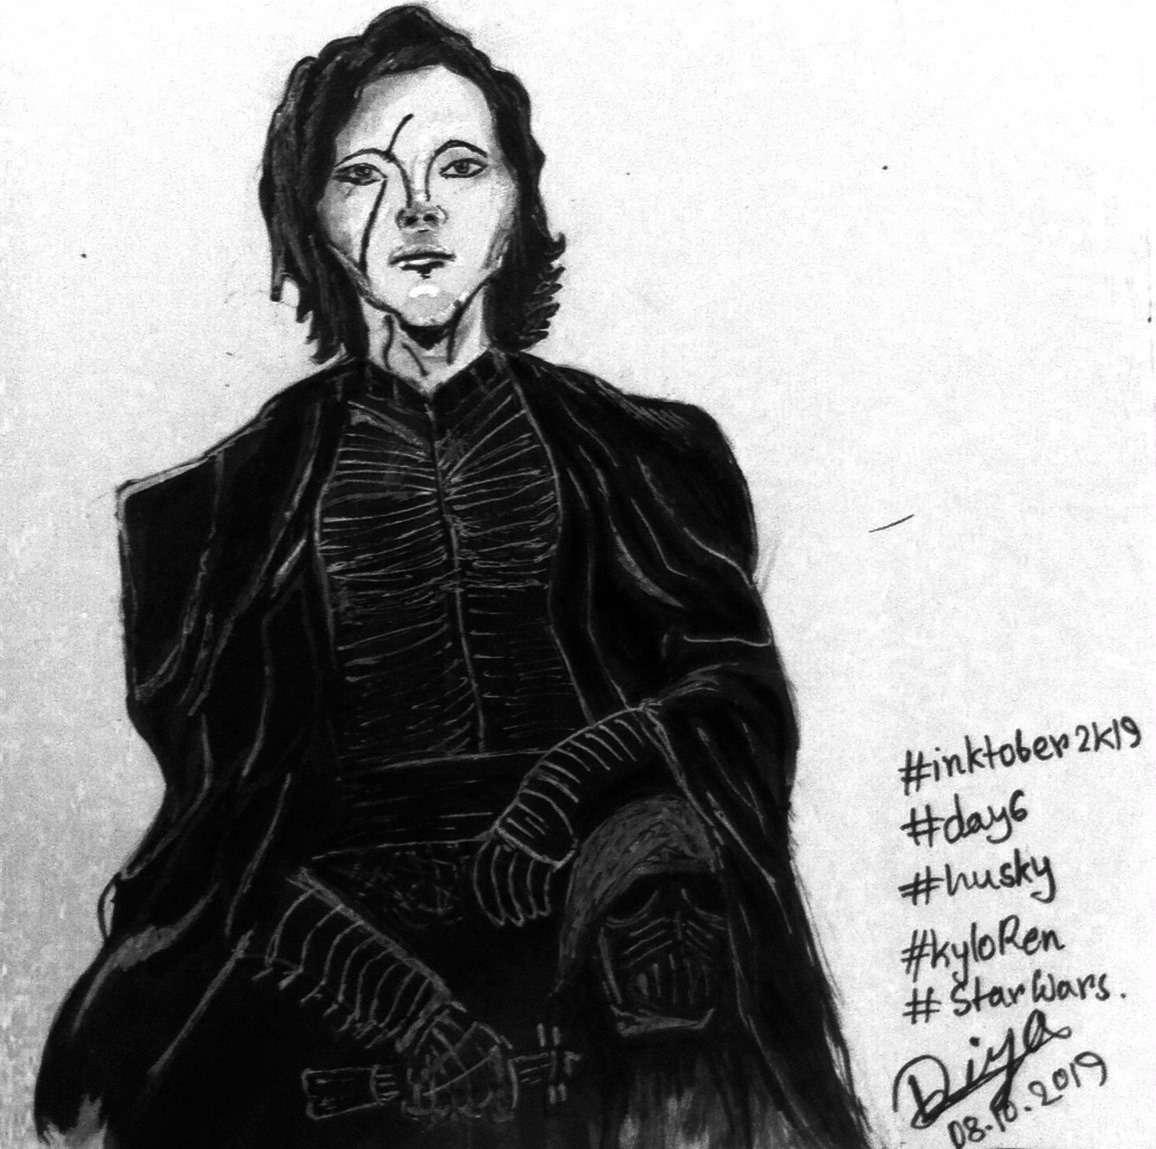 #inktober2k19
#day6
#husky
#kyloRen
#StarWars.
Diya
08.10.2019